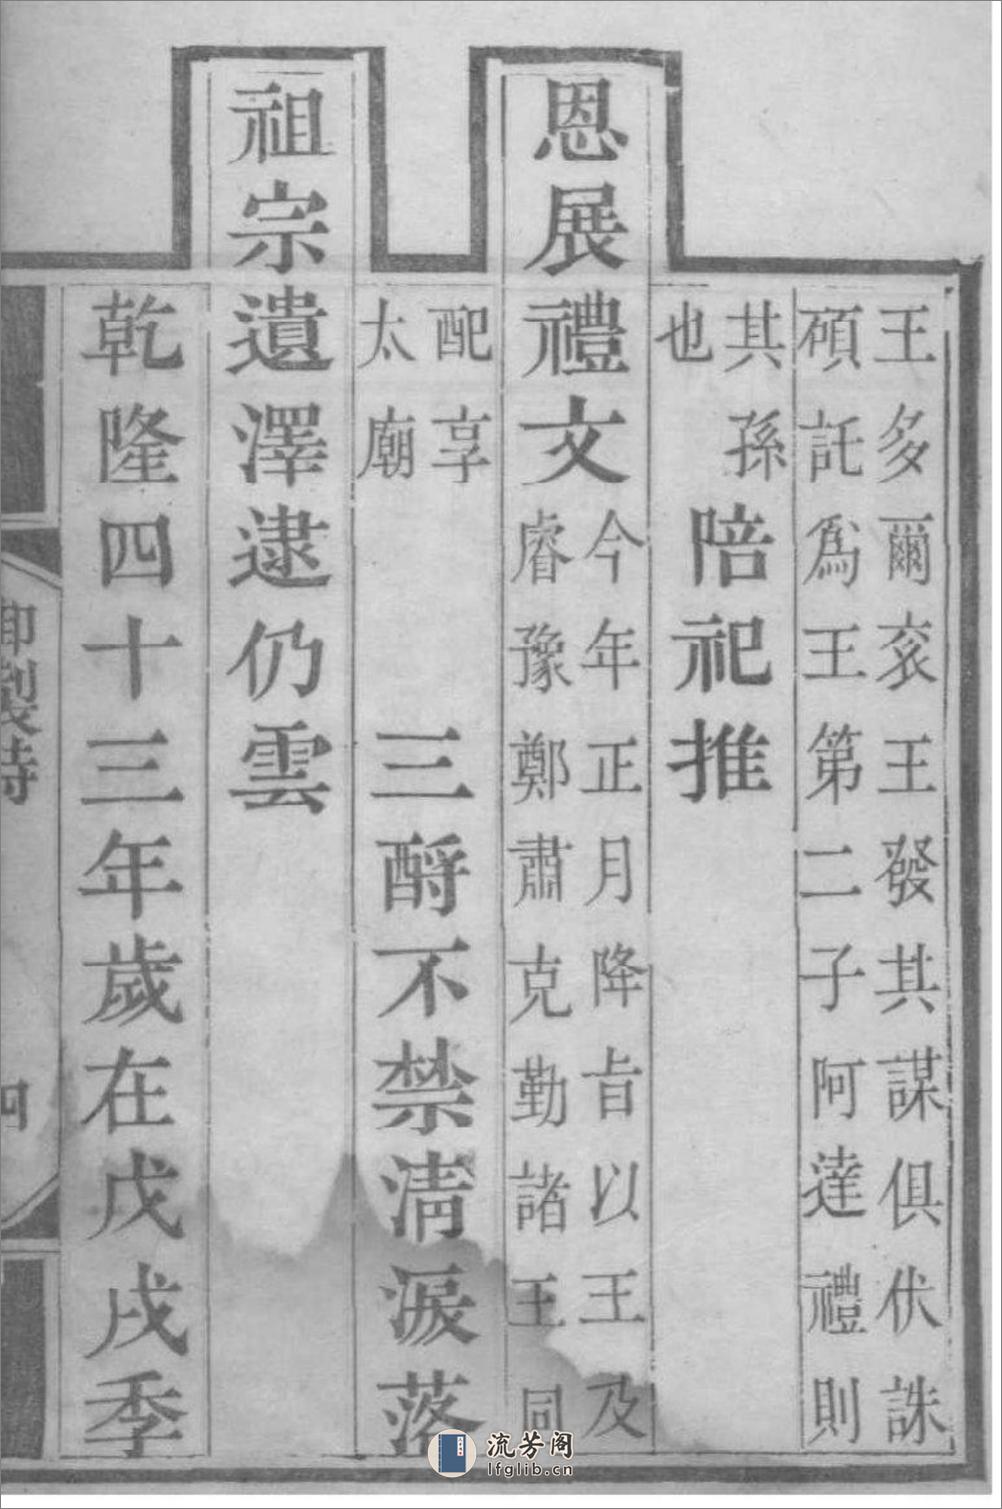 王多爾袞王發其謀俱伏誅
碩託爲王第二子阿達禮則
其孫
也
陪祀推
恩展禮文
今年正月降旨以王及
睿豫鄭肅克勤諸王同
配享
太廟
三酹不禁清淚落
祖宗遺澤逮仍雲
乾隆四十三年歲在戊戌季
御製詩
四
流芳阁
lfglib.cn